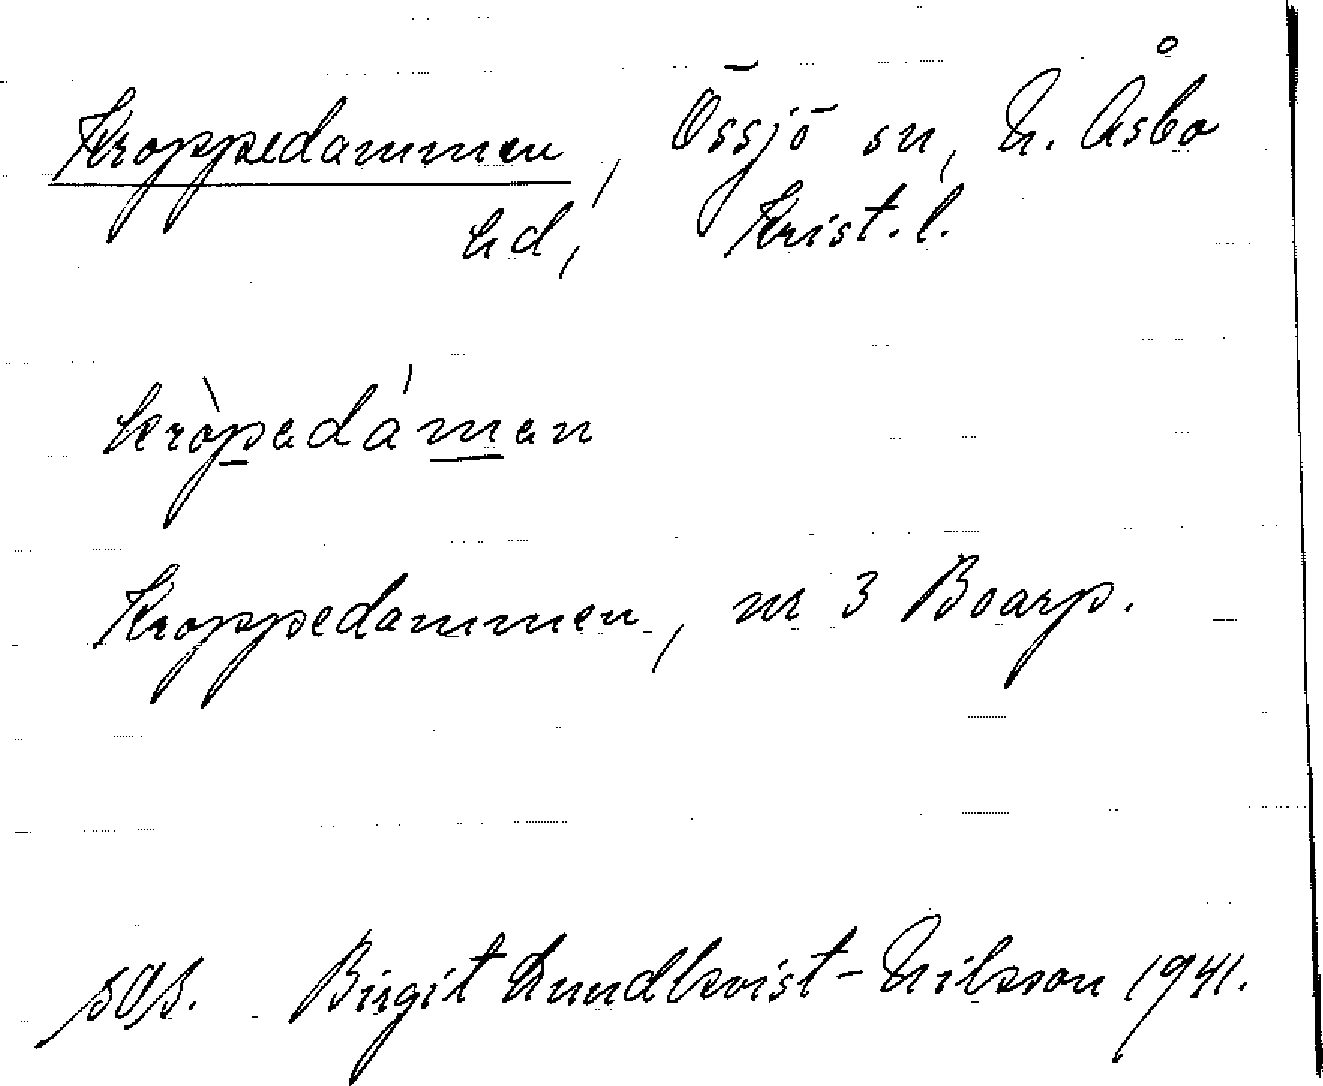 Kroppedammen, Össjö sn, N. Åsbo
hd, Krist. l.
kròpedámen
Kroppedammen, nr 3 Boarp.
Birgit Lundkvist-Nilsson 1941.